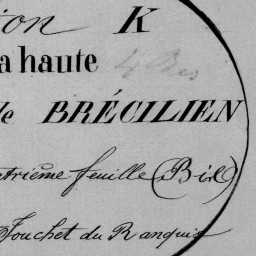 ion K
a haute
4 Bis
de BRÉCILIEN
atrième feuille (Bis)
Fouchet du Ranquis